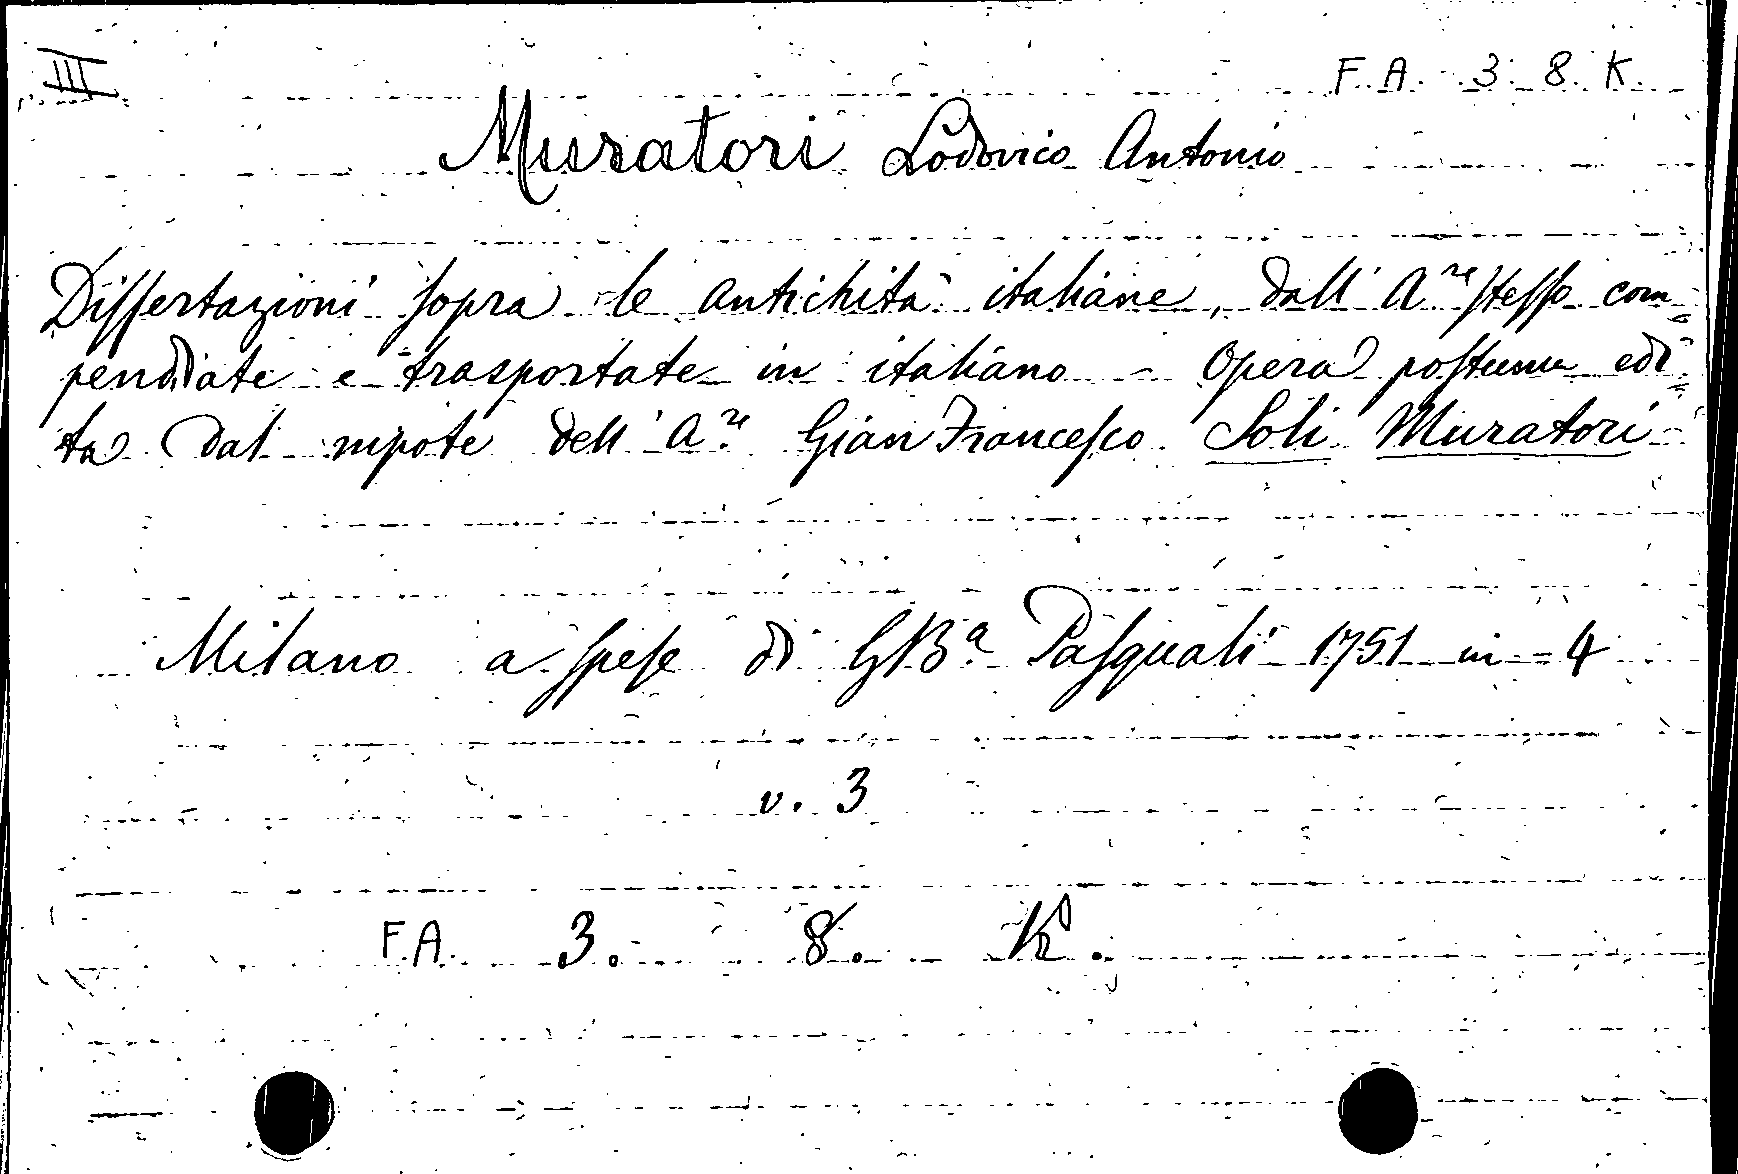 III
F. A. 3. 8. K.
Muratori Lodovico Antonio
Dissertazioni sopra le antichità italiane, dall'A.re stesso com=
pendiate e trasportate in italiano - Opera postuma edi=
ta dal nipote dell'A.re Gian Francesco Soli Muratori
Milano a spese di GBa Pasquali 1751 in-4
v. 3
F.A. 3. 8. K.